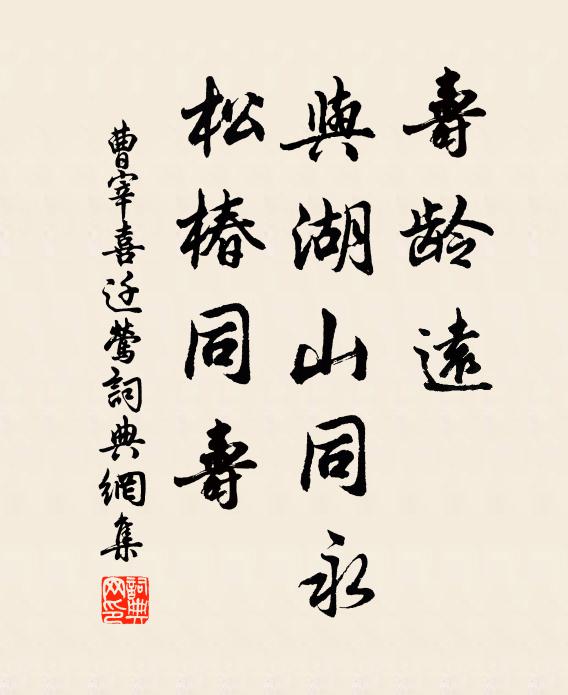 壽龄遠
與湖山同永
松椿同壽
曹宰喜迁鶯詞典網集
詞典网印